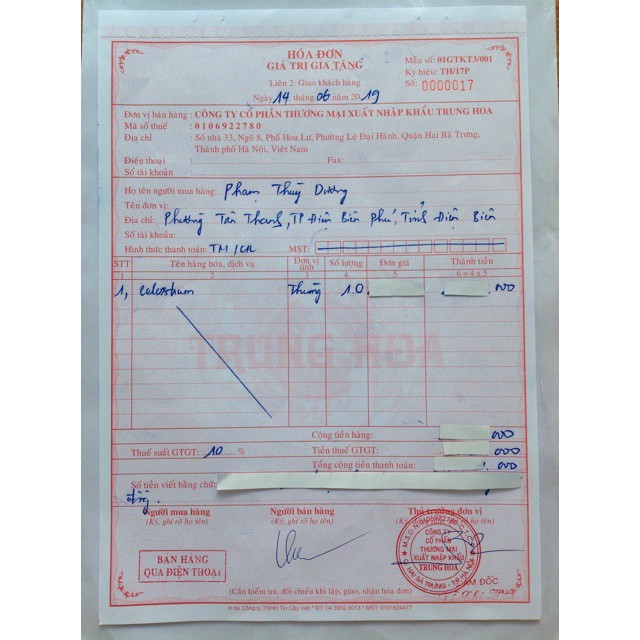 HÓA ĐƠN
GIÁ TRỊ GIA TĂNG
Mẫu số: 01GTKT3/001
Ký hiệu: TH/17P
Liên 2: Giao khách hàng
Số: 0000017
Ngày 14 tháng 06 năm 2019
Đơn vị bán hàng : CÔNG TY CỔ PHẦN THƯƠNG MẠI XUẤT NHẬP KHẨU TRUNG HOA
Mã số thuế : 0106922780
Địa chỉ : Số nhà 33, Ngõ 8, Phố Hoa Lư, Phường Lê Đại Hành, Quận Hai Bà Trưng,
Thành phố Hà Nội, Việt Nam
Điện thoại : Fax:
Số tài khoản :
Họ tên người mua hàng: Phạm Thùy Dương
Tên đơn vị:
Địa chỉ: Phường Tân Thanh, TP Điện Biên Phủ, Tỉnh Điện Biên
Số tài khoản:
Hình thức thanh toán: TM/CK MST:
STT Tên hàng hóa, dịch vụ Đơn vị tính Số lượng Đơn giá Thành tiền
1 2 3 4 5 6 = 4 x 5
1, Colostrum Thùng 10 000
TRUNG HOA
Cộng tiền hàng: 000
Thuế suất GTGT: 10 % Tiền thuế GTGT: 000
Tổng cộng tiền thanh toán: 000
Số tiền viết bằng chữ:
đồng.
Người mua hàng Người bán hàng Thủ trưởng đơn vị
(Ký, ghi rõ họ tên) (Ký, ghi rõ họ tên)
M.S.D.N: 0106922780
CÔNG TY
CỔ PHẦN
THƯƠNG MẠI
XUẤT NHẬP KHẨU
TRUNG HOA
HAI BÀ TRƯNG - TP. HÀ NỘI
BÁN HÀNG
QUA ĐIỆN THOẠI
(Cần kiểm tra, đối chiếu khi lập, giao, nhận hóa đơn)
In tại Công ty TNHH Tin Cây Việt * ĐT: 04 3902 9013 * MST: 0101624477